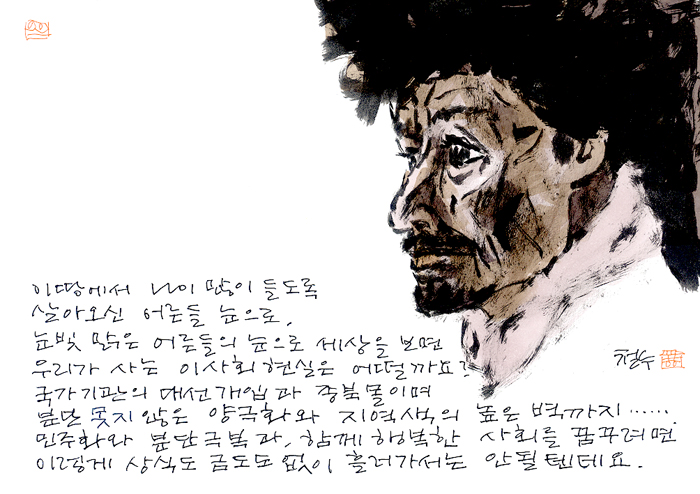 이땅에서 나이 많이 들도록
살아오신 어른들 눈으로.
눈빛 맑은 어른들의 눈으로 세상을 보면
우리가 사는 이사회현실은 어떨까요?
국가기관의 대선개입과 종북몰이며
분단 못지 않은 양극화와 지역색의 높은 벽까지……
민주화와 분단극복과, 함께 행복한 사회를 꿈꾸려면
이렇게 상식도 금도도 없이 흘러가서는 안될텐데요.
철수